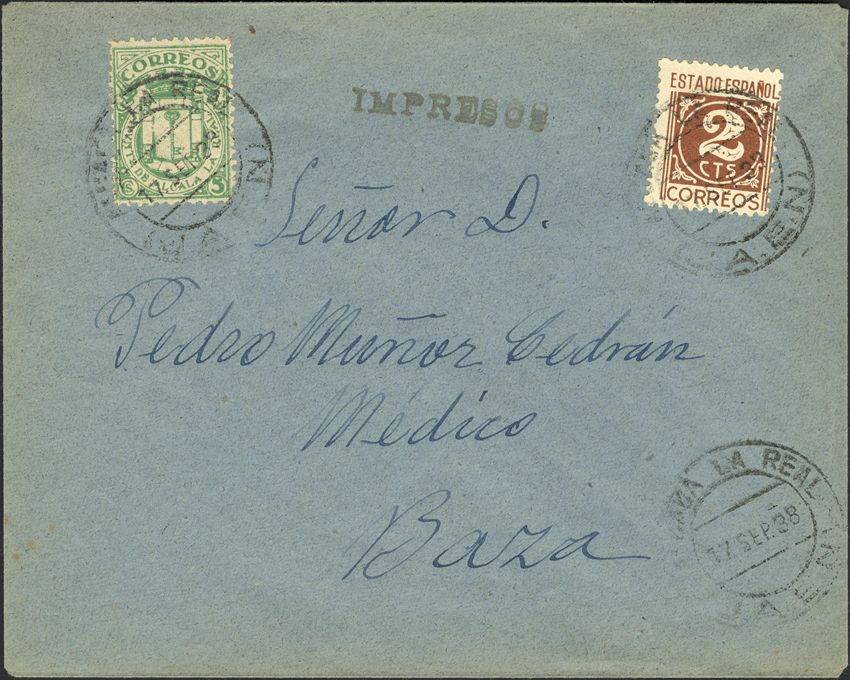 CORREOS
DE ALCALA LA
5
IMPRESOS
ESTADO ESPAÑOL
2
CTS
CORREOS
Señor D.
Pedro Muñoz Cedrán
Médico
Baza
LA REAL
17 SEP. 38